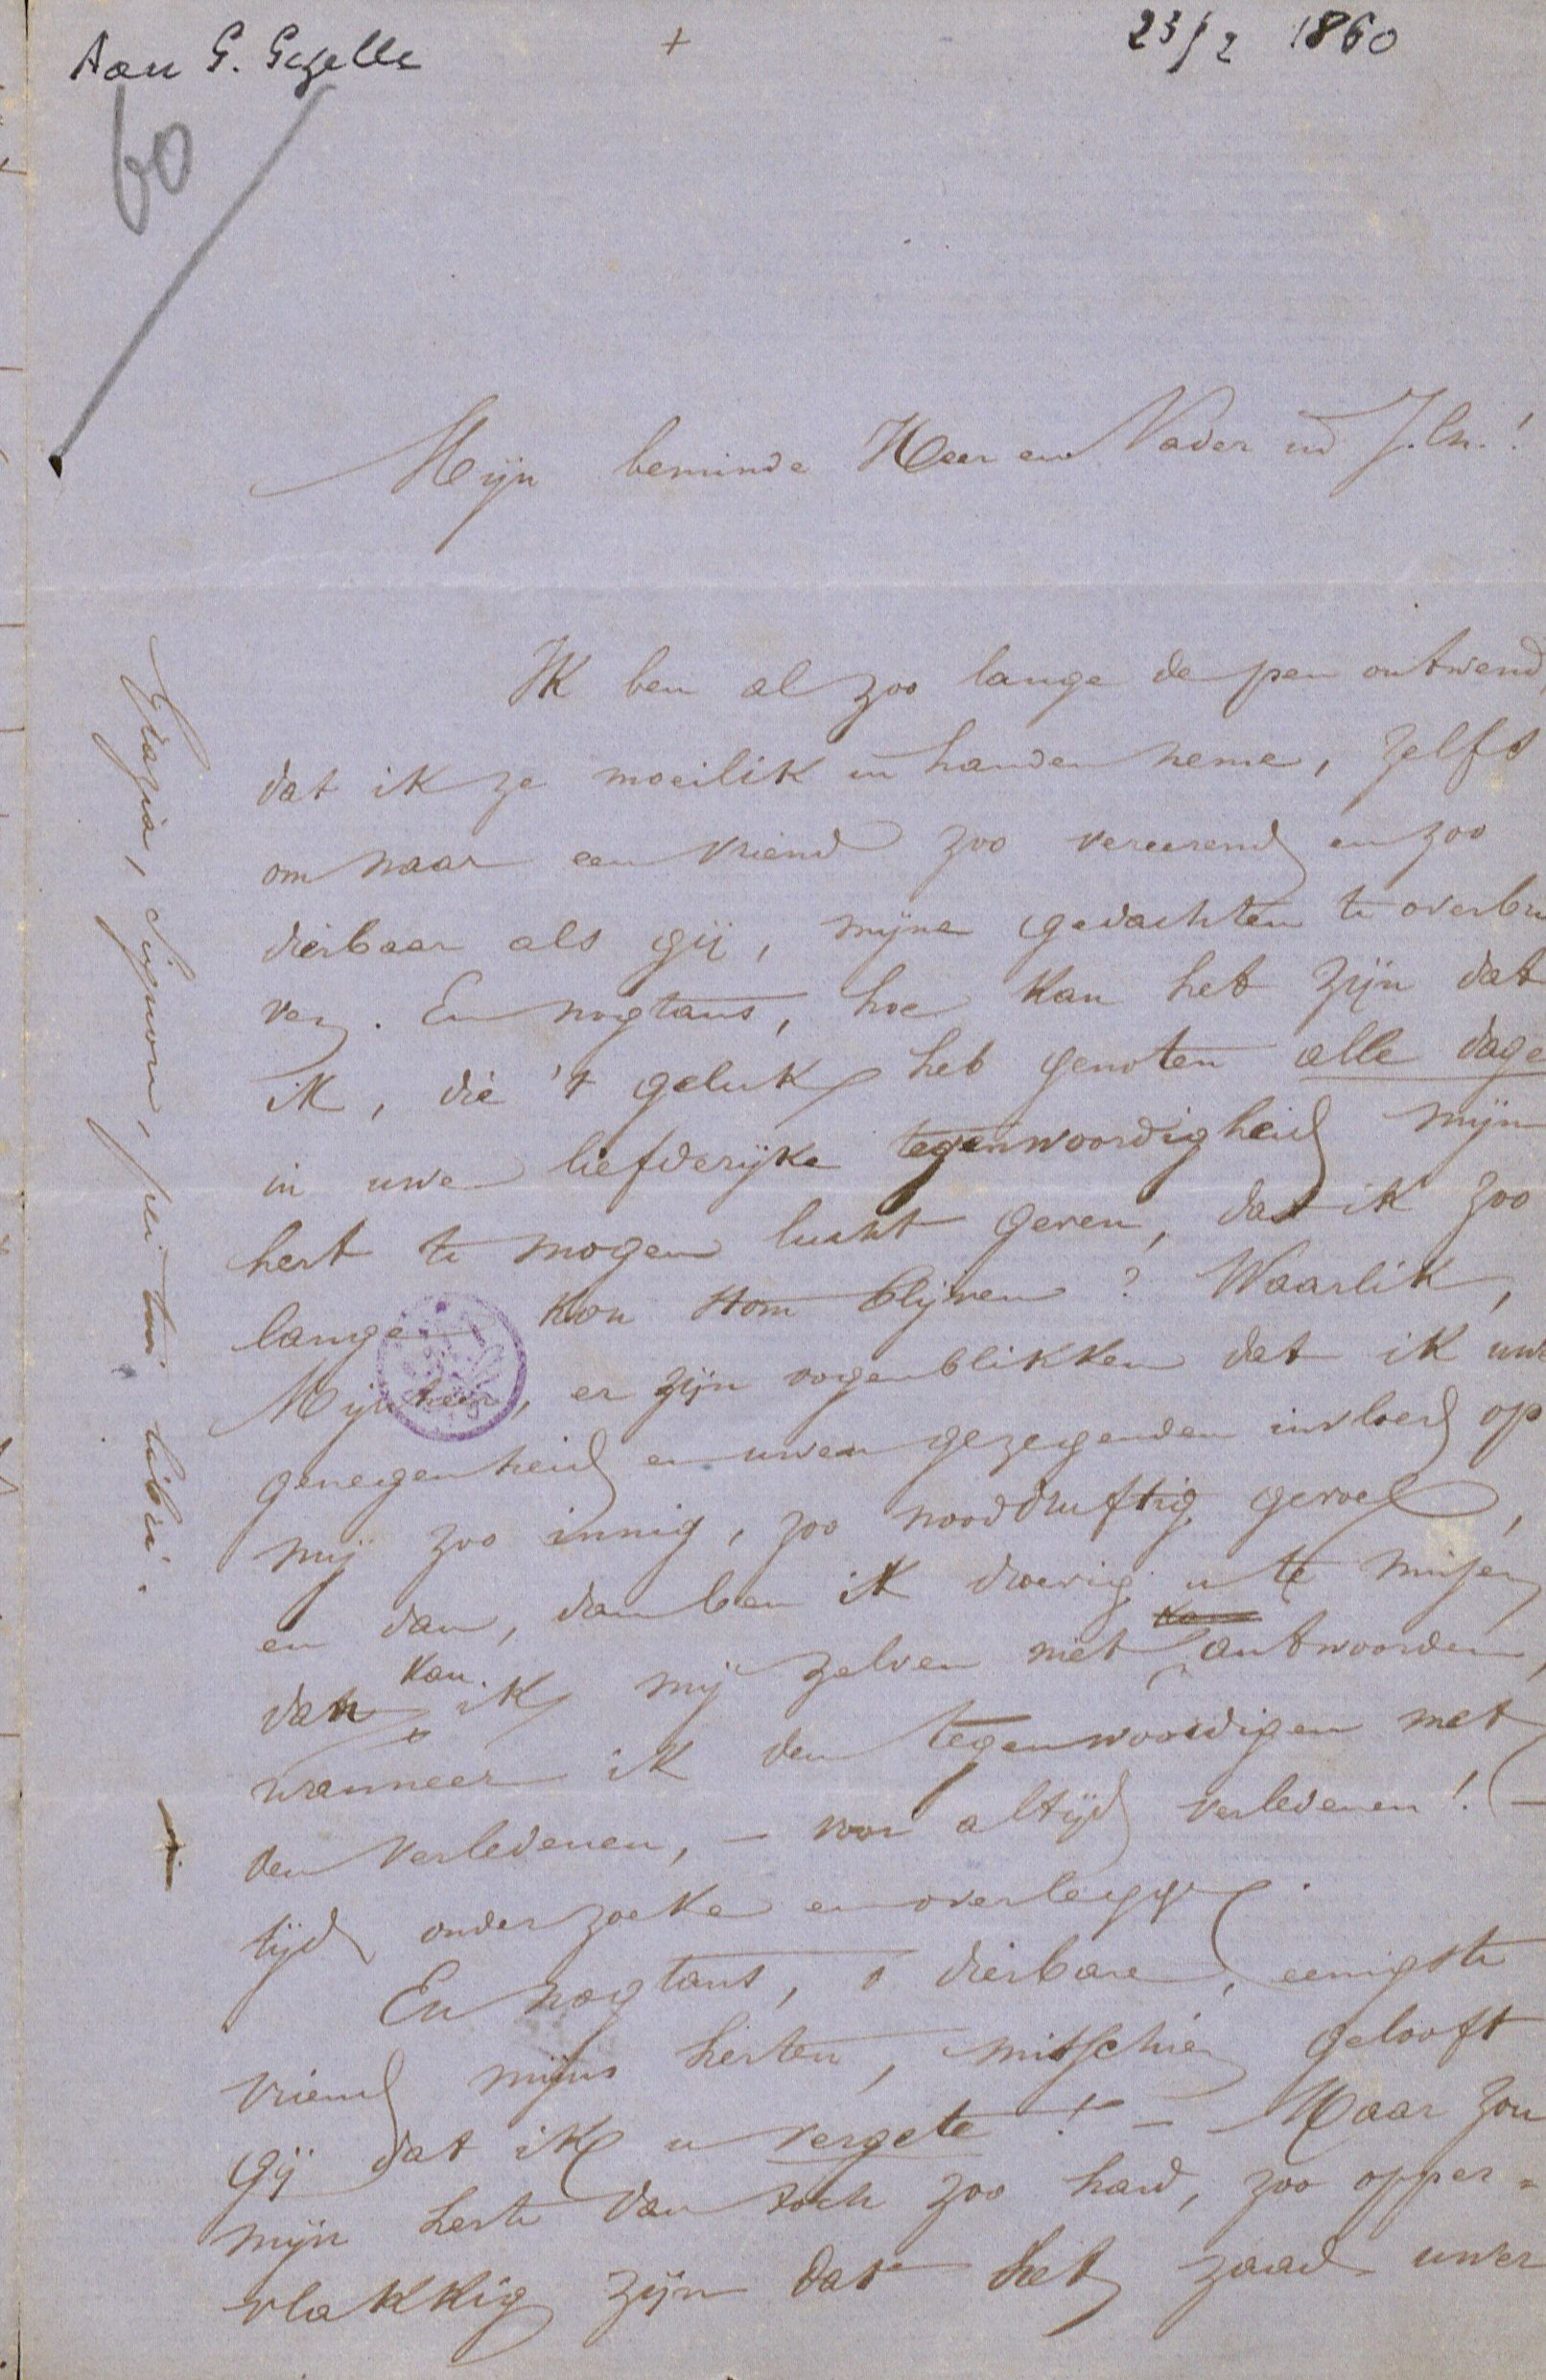 Aan G. Gezelle + 23/2 1860
60
Mijn beminde Heer en Vader in J. Ch.!
Ik ben al zoo lange de pen ontwend,
dat ik ze moeilik in handen neme, zelfs
om naar een vriend zoo vereerend en zoo
dierbaar als gij, mijne gedachten te overbrie
ven. En nogtans, hoe kan het zijn dat
ik, die 't geluk heb genoten alle dage
in uwe liefderijke tegenwoordigheid mijn
hert te mogen lucht geven, dat ik zoo
lange kon stom blijven? Waarlik,
Mijnheer, er zijn oogenblikken dat ik uwe
genegenheid en uwen gezegenden invloed op
mij zoo innig, zoo nooddruftig gevoel,
en dan, dan ben ik droevig u te missen,
dan kan ik mij zelven niet kan antwoorden,
wanneer ik den tegenwoordigen met
den verledenen, – voor altijd verledenen! –
tijd onderzoeke en overlegge.
En nogtans, o dierbare, eenigste
vriend mijns herten, misschien gelooft
gij dat ik u vergete! – Maar zou
mijn herte dan toch zoo hard, zoo opper=
vlakkig zijn dat het zaad uwer
Grazia, Signore, per tui libri.